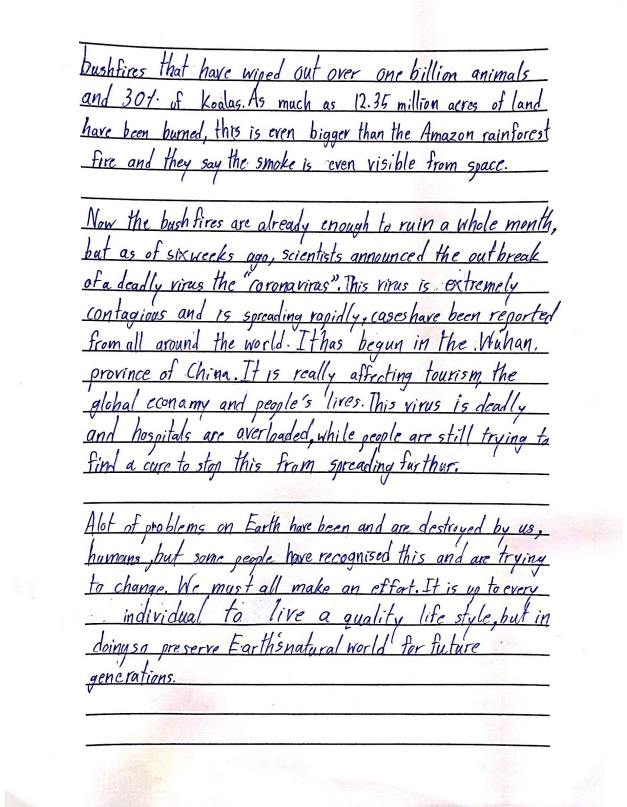 bushfires that have wiped out over one billion animals
and 30% of Koalas. As much as 12.35 million acres of land
have been burned, this is even bigger than the Amazon rainforest
fire and they say the smoke is even visible from space.
Now the bushfires are already enough to ruin a whole month,
but as of six weeks ago, scientists announced the outbreak
of a deadly virus the "coronavirus". This virus is extremely
contagious and is spreading rapidly, cases have been reported
from all around the world. It has begun in the Wuhan.
province of China. It is really affecting tourism, the
global economy and people's lives. This virus is deadly
and hospitals are overloaded, while people are still trying to
find a cure to stop this from spreading farthur.
Alot of problems on Earth have been and are destroyed by us,
humans, but some people have recognised this and are trying
to change. We must all make an effort. It is up to every
individual to live a quality life style, but in
doing so preserve Earth's natural world for future
generations.